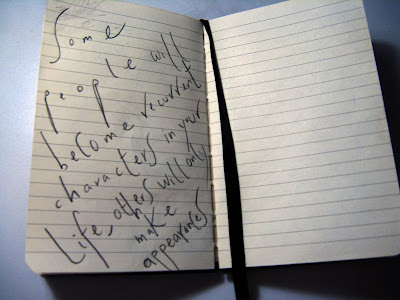 Some
people will
become recurrent
characters in your
life, others will only
make
appearances